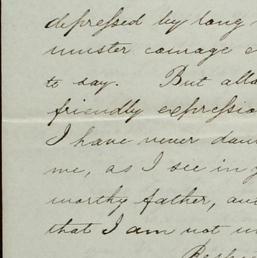 depressed by long
minister courage
to say. But allo
friendly expressio
I have never dou
me, as I see in
worthy father, an
that I am not